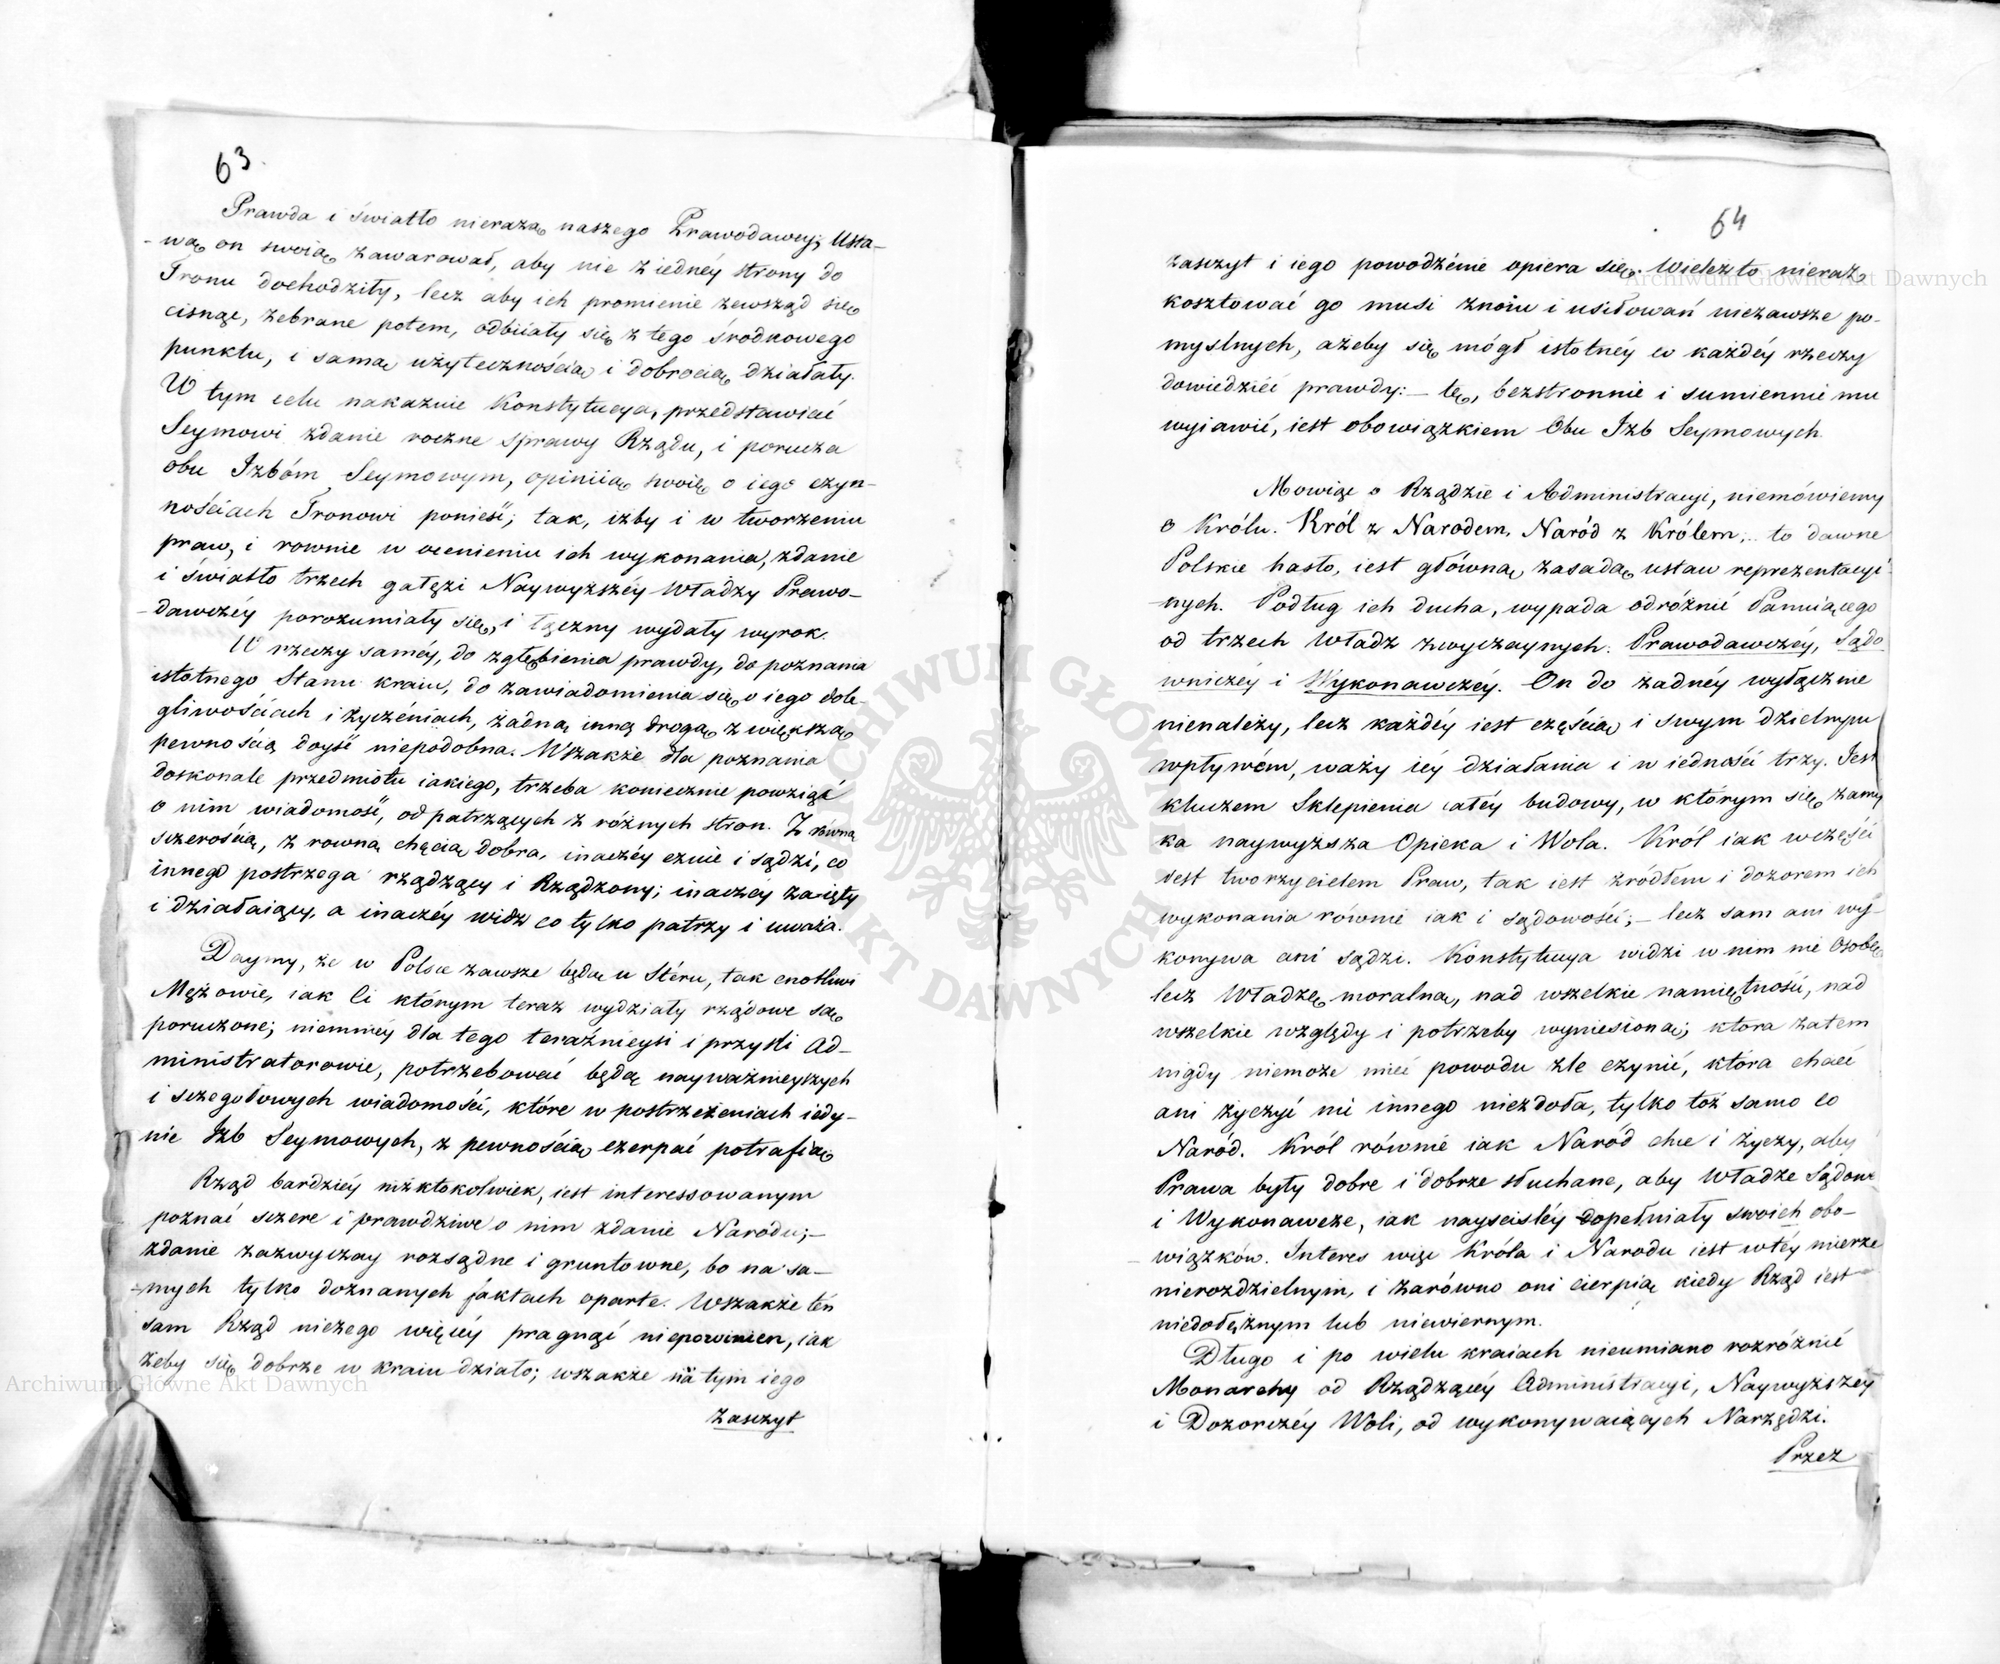 63
Prawda i światło nierażą naszego Prawodawcy; Usta-
-wą on swoią zawarował, aby nie z iednéy strony do
Tronu dochodziły, lecz aby ich promienie zewsząd się
cisnąc, zebrane potem, odbiiały się z tego środkowego
punktu, i samą użytecznością i dobrocią działały.
W tym celu nakazuie Konstytucya, przedstawiać
Seymowi zdanie roczne sprawy Rządu, i porucza
obu Izbóm Seymowym, opiniią swoię o iego czyn-
nościach Tronowi ponieść; tak, iżby i w tworzeniu
praw, i rownie w ocenieniu ich wykonania, zdanie
i światło trzech gałęzi Naywyższéy Władzy Prawo-
-dawczéy porozumiały się, i łączny wydały wyrok.
W rzeczy saméy, do zgłębienia prawdy, do poznania
istotnego Stanu kraiu, do zawiadomienia się o iego dole-
gliwościach i życzéniach, żadną inną drogą z większą
pewnością doyść niepodobna. Wszakże dla poznania
doskonale przedmiotu iakiego, trzeba koniecznie powziąć
o nim wiadomość, od patrzących z różnych stron. Z równą
sczerością, z rowną chęcią dobra, inaczéy czuie i sądzi, co
innego postrzega rządzący i Rządzony; inaczéy zaięty
i działaiący, a inaczéy widz co tylko patrzy i uważa.
Daymy, że w Polsce zawsze będą u Stéru, tak cnotliwi
Mężowie, iak ci którym teraz wydziały rządowe są
poruczone; niemniéy dla tego teraźnieysi i przyszli Ad-
ministratorowie, potrzebować będą nayważnieyszych
i sczegołowych wiadomości, które w postrzeżeniach iedy-
nie Izb Seymowych, z pewnością czerpać potrafią
Rząd bardziéy niż ktokolwiek, iest interessowanym
poznać sczere i prawdziwe o nim zdanie Narodu;-
zdanie zazwyczay rozsądne i gruntowne, bo na sa-
-mych tylko doznanych faktach oparte. Wszakże tén
sam Rząd niczego więcéy pragnąć niepowinien, iak
żeby się dobrze w kraiu działo; wszakże na tym iego
zasczyt
64
zasczyt i iego powodzénie opiera się. Wieleżto nieraz
kosztować go musi znoiu i usiłowań niezawsze po-
myslnych, ażeby się mógł istotnéy w każdéy rzeczy
dowiedziéć prawdy:- tę, bezstronnie i sumiennie mu
wyiawić, iest obowiązkiem Obu Izb Seymowych.
Mowiąc o Rządzie i Administracyi, niemówiemy
o Królu. Król z Narodem, Naród z Królem, to dawne
Polskie hasło, iest główną zasadą ustaw reprezentacyi-
-nych. Podług ich ducha, wypada odróżnić Panuiącego
od trzech Władz zwyczaynych. Prawodawczéy, Sądo
wniczéy i Wykonawczéy. On do żadnéy wyłącznie
nienależy, lecz każdéy iest częścią i swym dzielnym
wpływém, waży iéy działania i w iedności trzy. Jest
kluczem Sklepienia całéy budowy, w którym się zamy
ka naywyższa Opieka i Wola. Król iak wczęści
iest tworzycielem Praw, tak iest źródłem i dozorem ich
wykonania równie iak i sądowości;- lecz sam ani wy-
konywa ani sądzi. Konstytucya widzi w nim nie Osobę
lecz Władzę moralną, nad wszelkie namiętności, nad
wszelkie względy i potrzeby wyniesioną; ktora zatem
nigdy niemoże mieć powodu złe czynić, która chcieć
ani życzyć nic innego niezdoła, tylko toż samo co
Naród. Król równie iak Naród chce i życzy, aby
Prawa były dobre i dobrze słuchane, aby Władze Sądowe
i Wykonawcze, iak nayscisléy dopełniały swoich obo-
wiązków. Interes więc Króla i Narodu iest w téy mierze
nierozdzielnym, i zarówno oni cierpią kiedy Rząd iest
niedołężnym lub niewiernym.
Długo i po wielu kraiach nieumiano rozróżnić
Monarchy od Rządzącéy Administracyi, Naywyższéy
i Dozorczéy Woli, od wykonywaiących Narzędzi.
Przez
Archiwum Główne Akt Dawnych
Archiwum Główne Akt Dawnych
ARCHIWUM GŁÓWNE AKT DAWNYCH